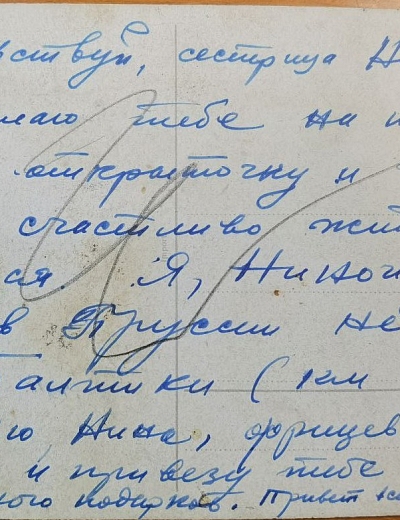 вствуй, сестрица Н
лаю тебе на п
открыточку и
счастливо жит
ая Я, Ниноч
в Пруссии не
алтики (км
ю, Нина, фрицев
и привезу тебе
ного подарков. Привет все